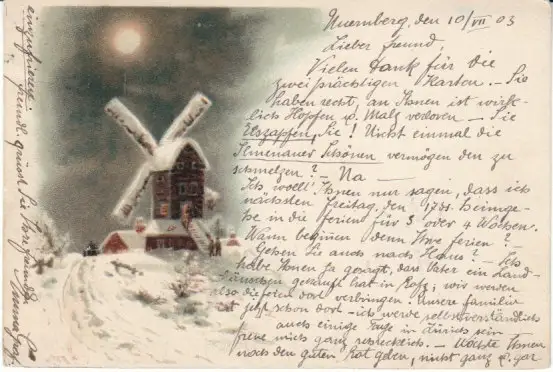 Nuernberg, den 10/VII 03
Lieber Freund,
Vielen Dank für die
zwei prächtigen Karten. – Sie
haben recht, an Ihnen ist wirk-
lich Hopfen u. Malz verloren – Sie
Eiszapfen, Sie! Nicht einmal die
Ilmenauer Schönen vermögen den zu
schmelzen? – Na –
Ich wollt' Ihnen nur sagen, dass ich
nächsten Freitag, den 17ds. heimge-
he in die Ferien für 3 oder 4 Wochen.
Wann beginnen denn Ihre Ferien? –
Gehen Sie auch nach Haus? – Ich
habe Ihnen ja gesagt, dass Vater ein Land-
häuschen gekauft hat in ; wir werden
also die Ferien dort verbringen. Unsere Familie
ist jetzt schon dort – ich werde selbstverständlich
auch einige Tage in Zürich sein
freue mich ganz – Möchte Ihnen
noch den guten Rat geben, nicht ganz u. gar
einzufrieren.
freundl. Gruss